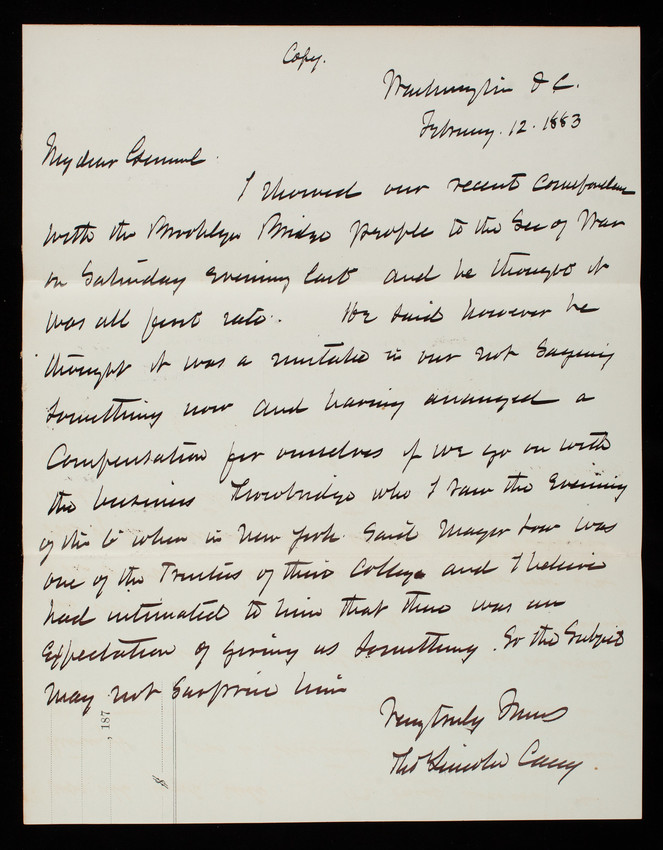 Copy.
Washington D C.
February. 12. 1883
My dear General.
I showed our recent correspondence
with the Brooklyn Bridge people to the Sec of War
on Saturday evening last and he thought it
was all first rate. He said however he
thought it was a mistake in our not saying
something now and having arranged a
compensation for ourselves if we go on with
the business Trowbridge who I saw the evening
of the 6 when in New York. Said Mayor Low was
one of the Trustees of their College and I believe
had intimated to him that there was an
expectation of giving us something. So the subject
may not surprise him
Very truly Yours
Thos Lincoln Casey.
, 187